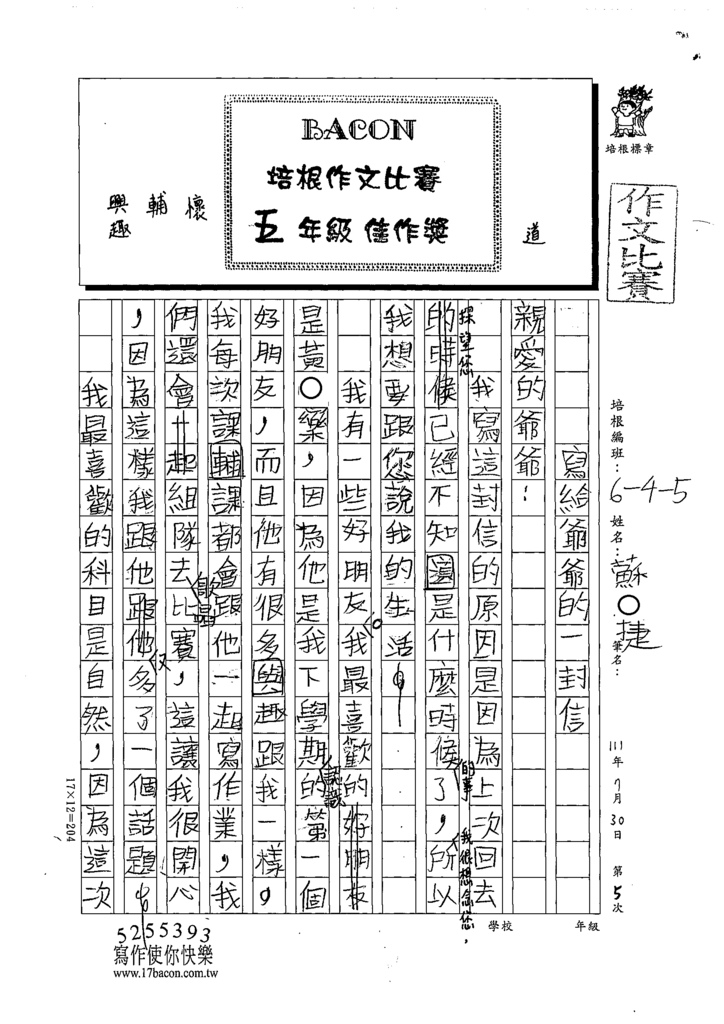 培根標章
作文比賽
BACON
培根作文比賽
五年級佳作獎
道
懷
輔
興趣
培根編班：6-4-5
姓名：蘇○捷
筆名：
111年7月30日 第5次
學校 年級
寫給爺爺的一封信
親愛的爺爺！
我寫這封信的原因是因為上次回去
探望您
的時候已經不知道是什麼時候了，所以
的事
我很想念您，
我想要跟您說我的生活。
我有一些好朋友我最喜歡的好朋友
。
是黃○樂，因為他是我下學期的第一個
認識
好朋友，而且他有很多興趣跟我一樣，
我每次課輔課都會跟他一起寫作業，我
們還會一起組隊去比賽，這讓我很開心
歌唱
，因為這樣我跟他跟他多了一個話題。
又
我最喜歡的科目是自然，因為這次
17×12=204
5255393
寫作使你快樂
www.17bacon.com.tw